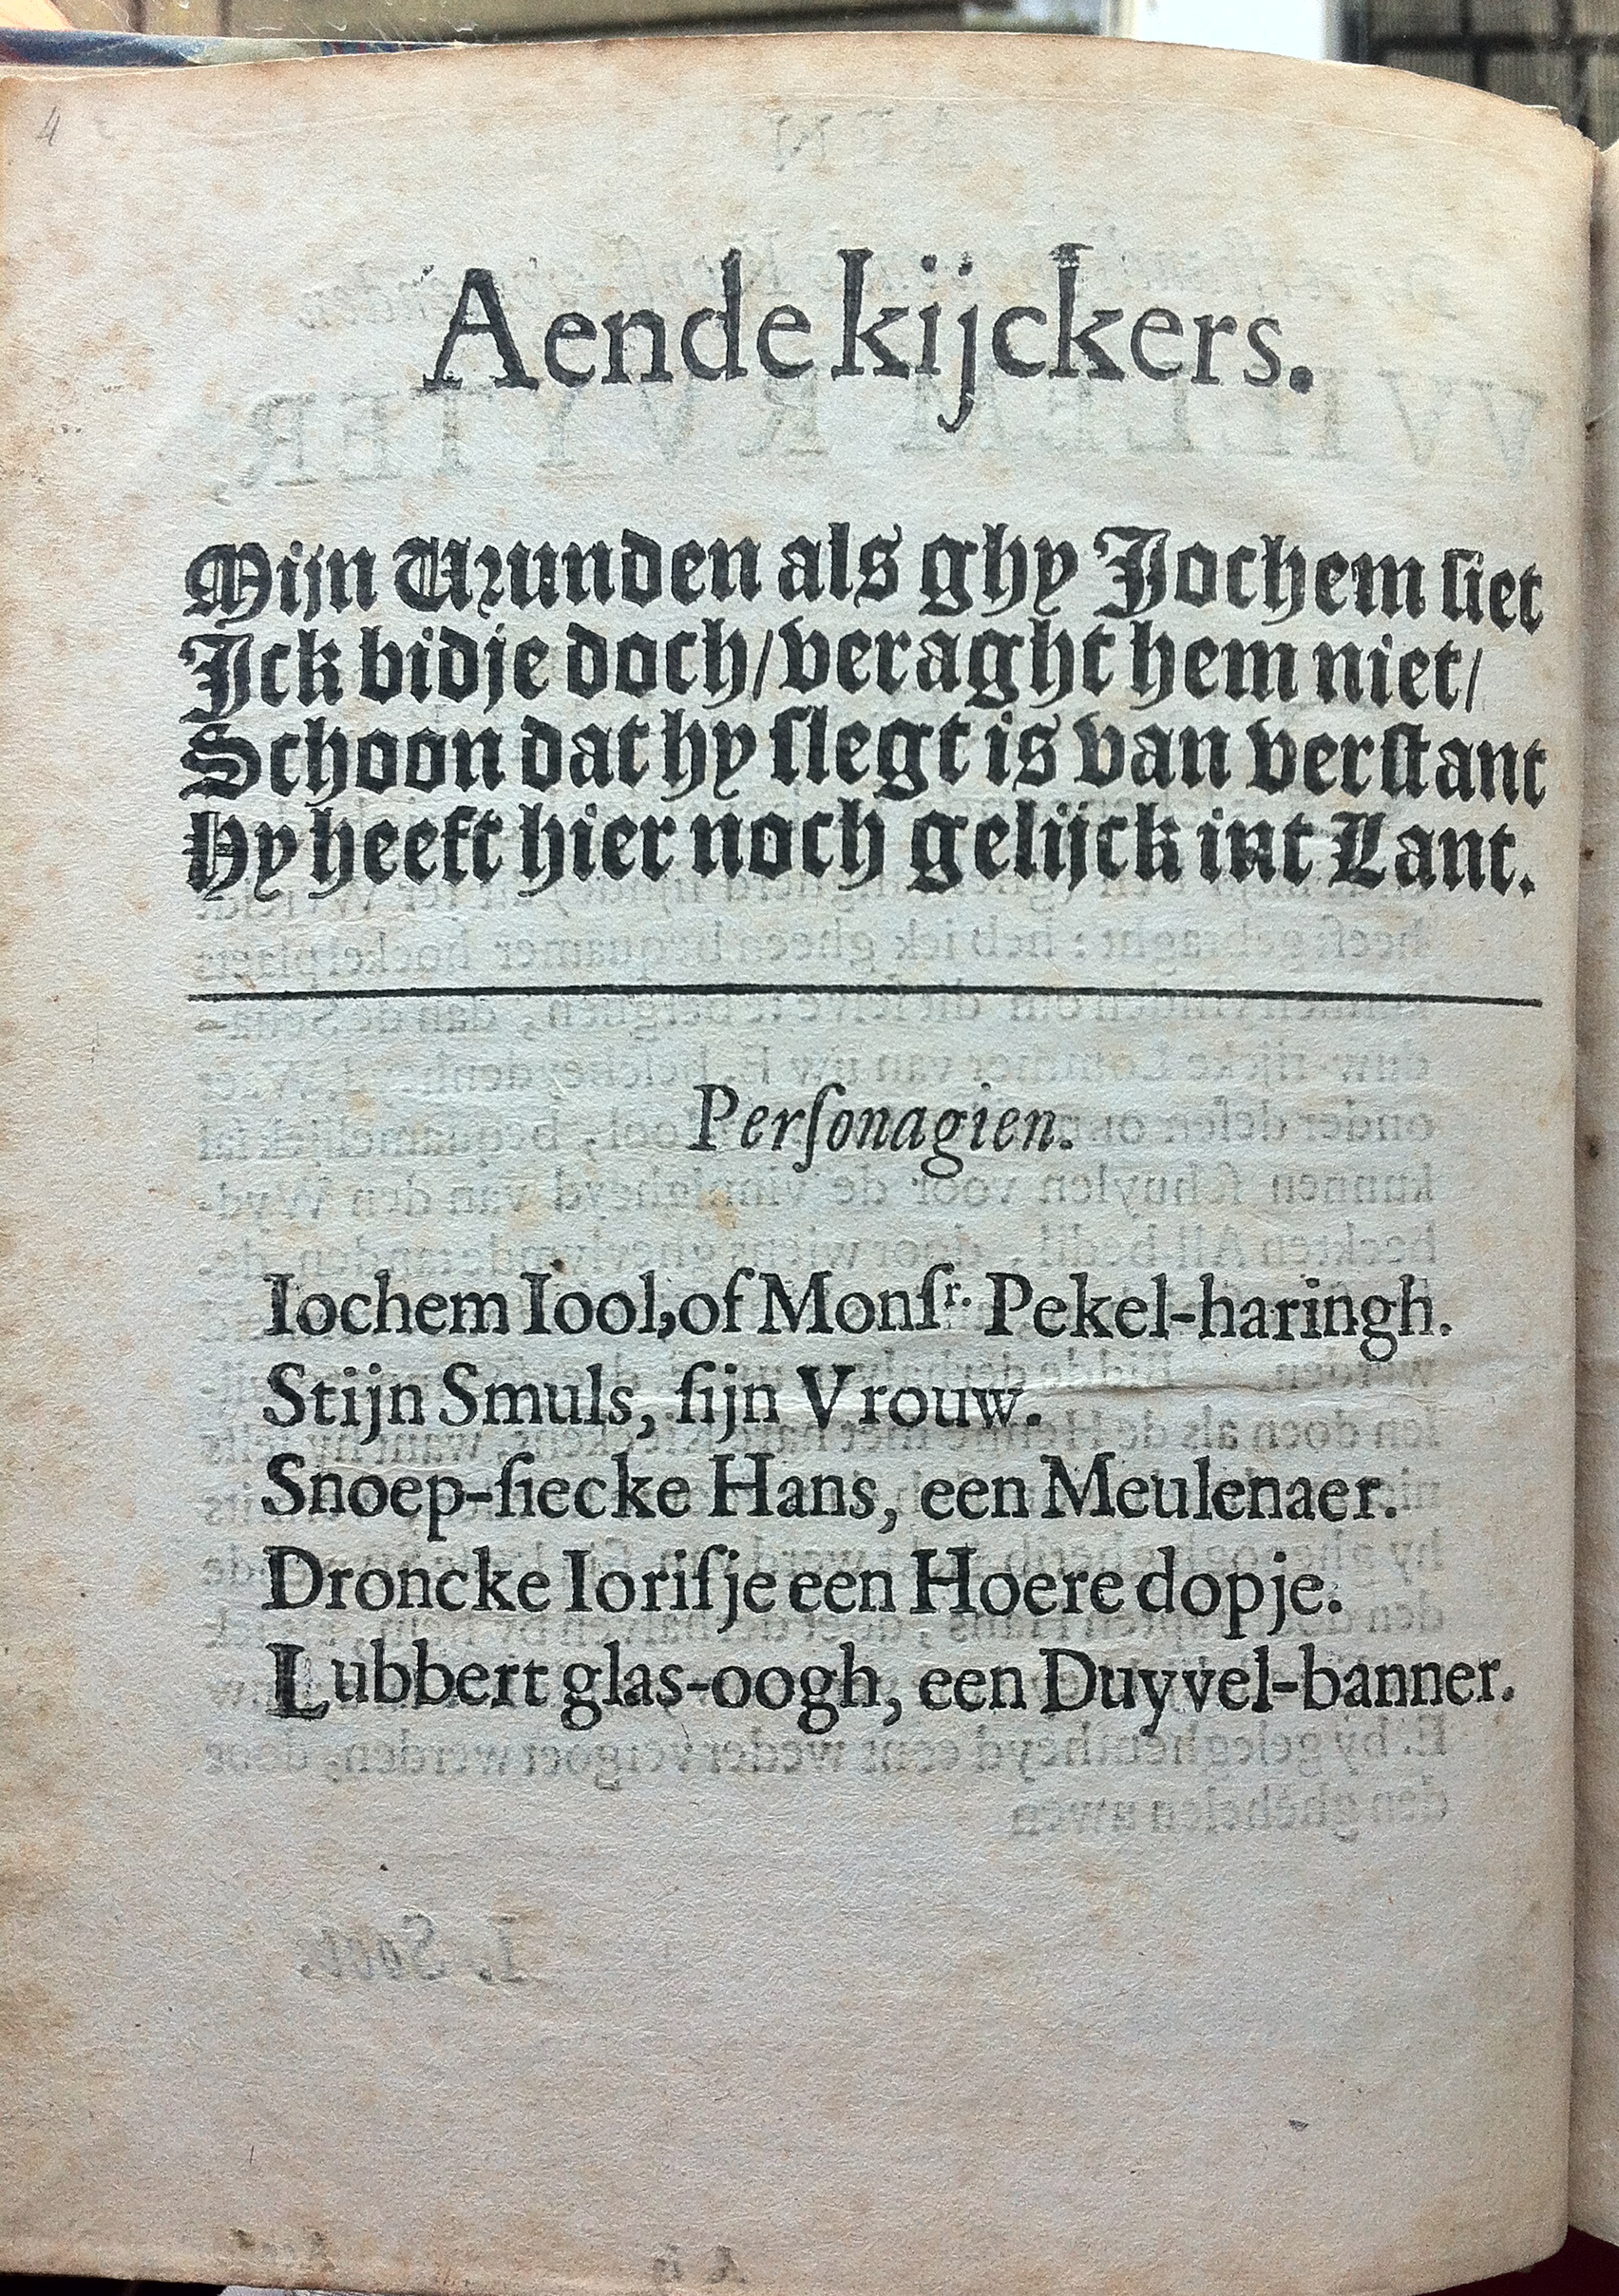 4
Aende kijckers.
Mijn Vrunden als ghy Jochem siet
Ick bidje doch/veraght hem niet/
Schoon dat hy slegt is van verstant
Hy heeft hier noch gelijck int Lant.
Perſonagien.
Iochem Iool,of Monſr. Pekel-haringh.
Stijn Smuls, ſijn Vrouw.
Snoep-ſiecke Hans, een Meulenaer.
Droncke Ioriſje een Hoere dopje.
Lubbert glas-oogh, een Duyvel-banner.